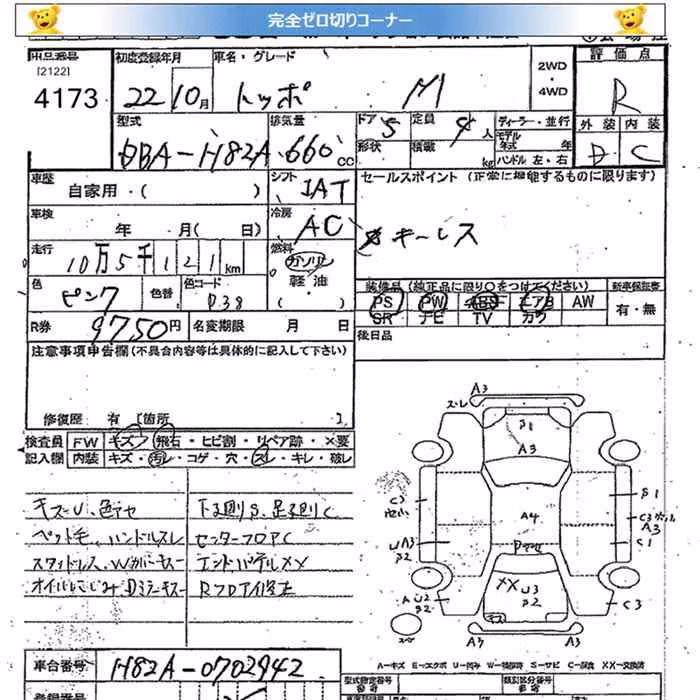 完全ゼロ切りコーナー
出品番号 初度登録年月 車名・グレード 2WD・4WD 評価点
[2122]
4173 22 10月 トッポ M R
型式 排気量 ドア 5 定員 4人 ディーラー・並行 外装 内装
DBA-H82A 660cc 形状 積載 kg モデル年式 年 ハンドル 左・右 D C
車歴 自家用・( ) シフト IAT セールスポイント(正常に機能するものに限ります)
車検 年 月( 日) 冷房 AC キーレス
走行 10万5千121km 燃料 ガソリン 軽油 ( )
装備品(純正品に限り○をつけてください) 新車保証書
色 ピンク 色替 色コード P38 PS PW ABS エアB AW 有・無
SR ナビ TV カワ
R券 9750円 名変期限 月 日 後日品
注意事項申告欄(不具合内容等は具体的に記入して下さい)
修復歴 有 [箇所 ]
検査員 FW キズ・飛石・ヒビ割・リペア跡・×要
記入欄 内装 キズ・汚レ・コゲ・穴・スレ・キレ・破レ
キズ・U、色アセ 下廻りS、足廻りC
ペット毛、ハンドルスレ センターフロアC
スタッドレス、Wカバーキズ エンドパネルXX
オイルにじみ Rフロア修正
A3
スレ
S1
A3
S1
C3
A4
C3
A3
UA3
S2
C1
XX U3
S2
A U2
S2
キズ
C3
スペア
A3 A3
A-キズ E-エクボ U-凹み W-補修跡 S-サビ C-腐食 XX-交換済
車台番号 H82A-0702942
型式指定番号 類別区分番号
登録番号 参考 参考